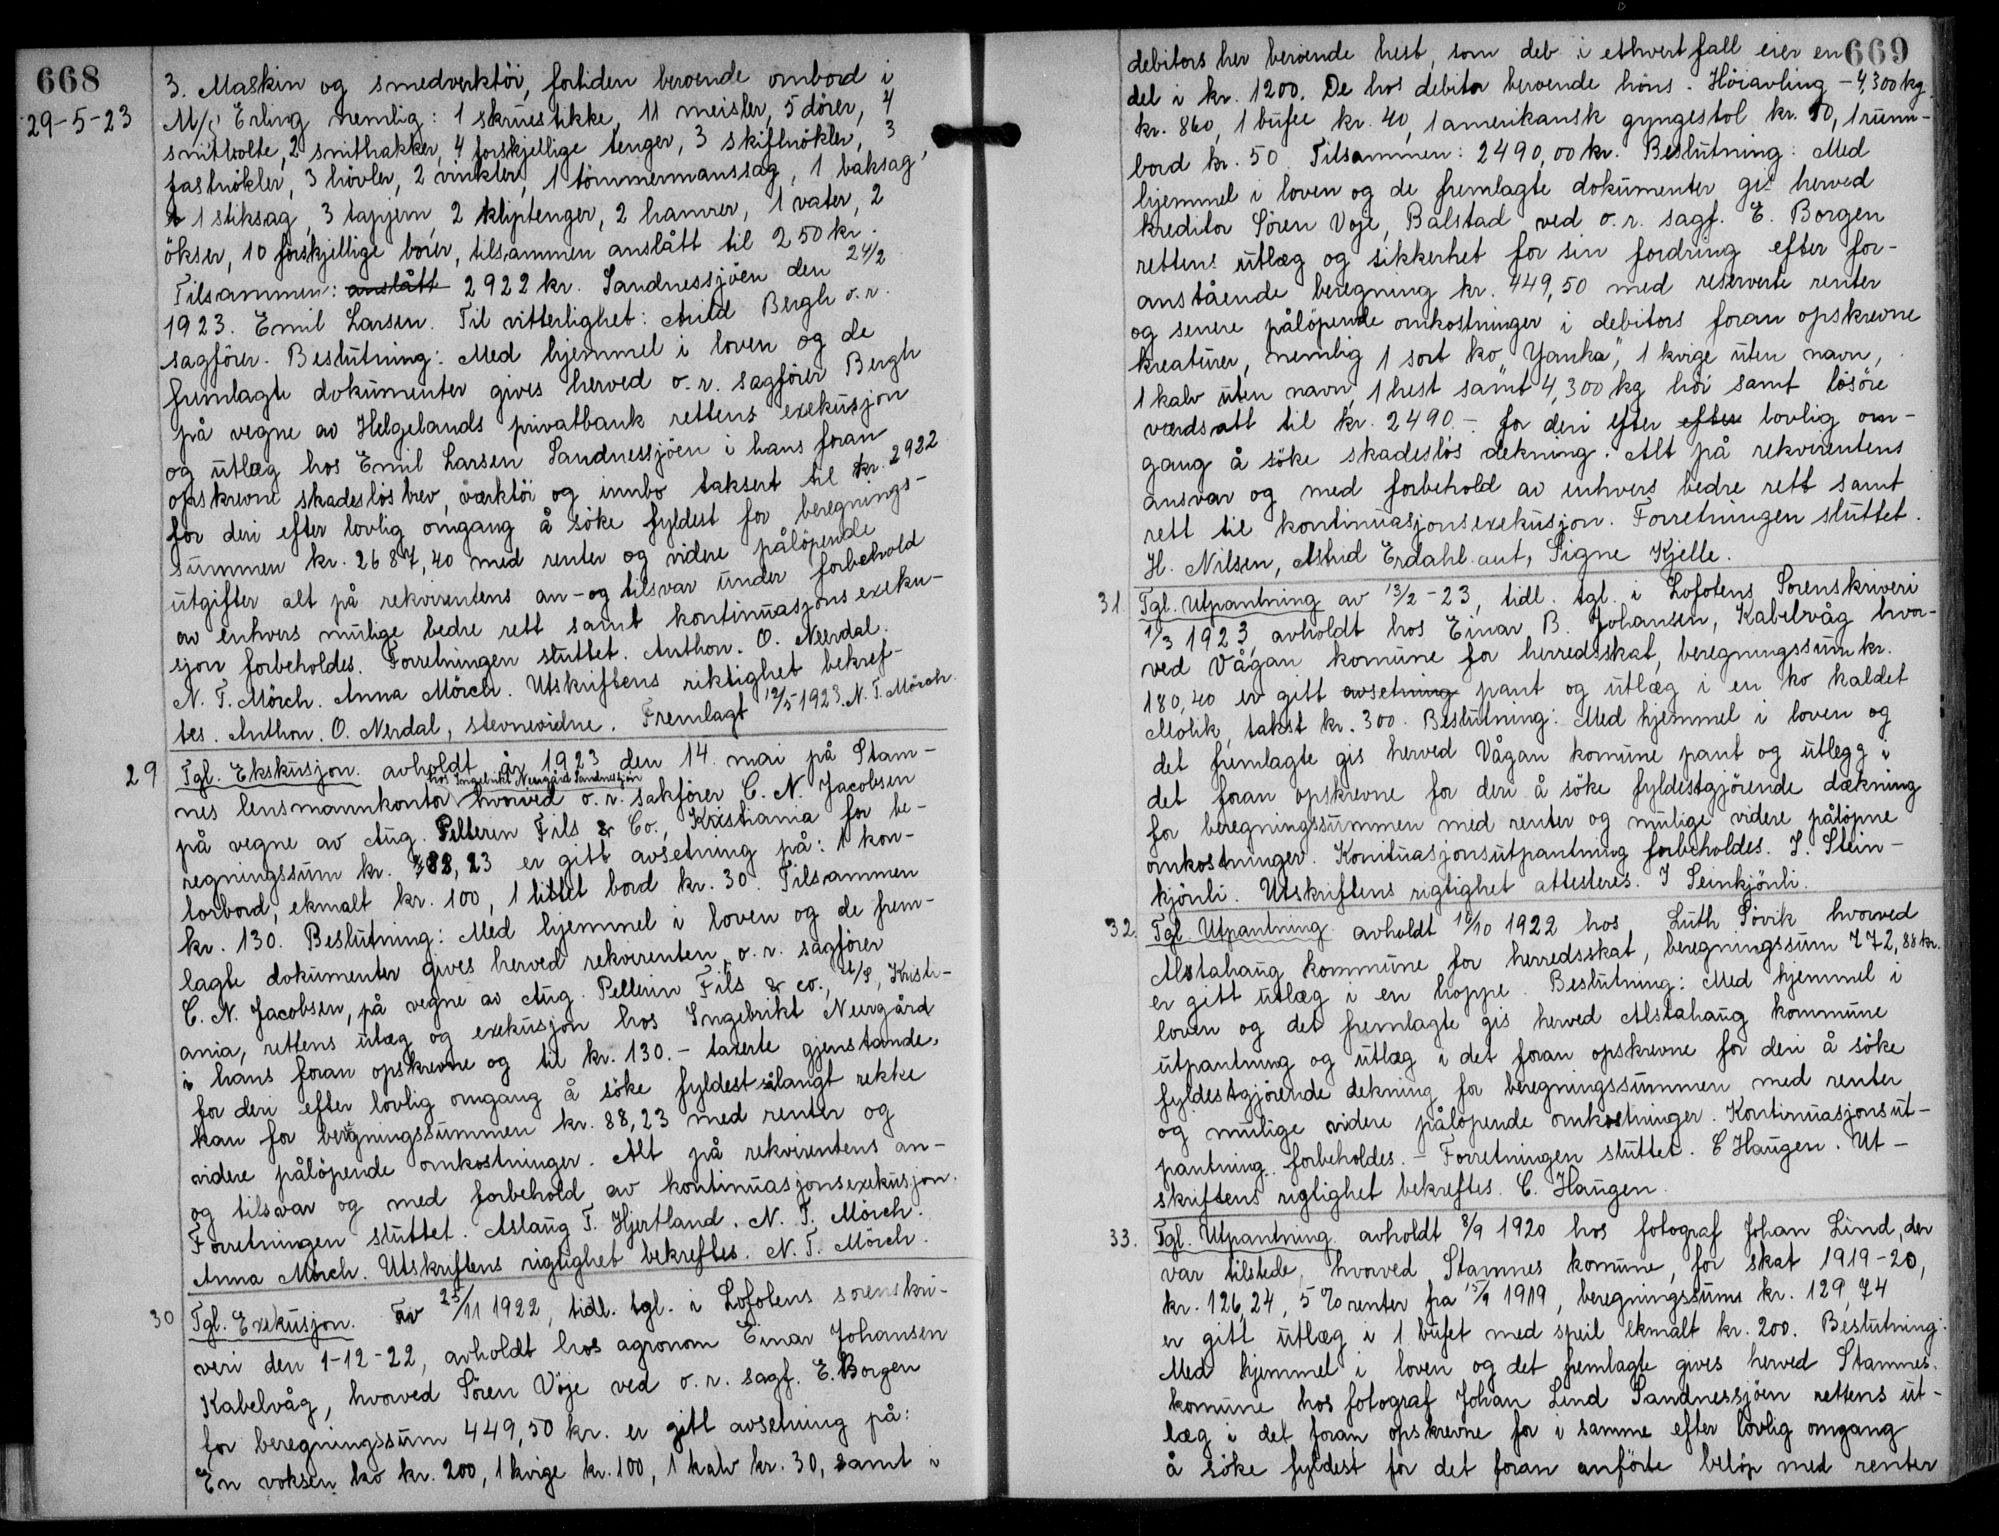 668
29-5-23
3. Maskin og smedverktöi, fortiden beroende ombord i
M/S Erling nemlig: 1 skruestikke, 11 meisler, 5 dörer, 4
snitbolte, 2 snithakker, 4 forskjellige tenger, 3 skiftnökler, 3
fastnökler, 3 hövler, 2 vinkler, 1 tömmermanssag, 1 baksag,
1 stiksag, 3 tapjern, 2 kliptenger, 2 hamrer, 1 vater, 2
ökser, 10 forskjellige borer, tilsammen anslått til 250 kr.
Tilsammen: anslått 2922 kr. Sandnessjöen den 24/2
1923. Emil Larsen. Til vitterlighet: Auld Bergh o.r.
sagförer. Beslutning: Med hjemmel i loven og de
fremlagte dokumenter gives herved o.r. sagförer Bergh
på vegne av Helgelands privatbank rettens exekusjon
og utlæg hos Emil Larsen Sandnessjöen i hans foran
opskrevne skadeslösbrev, værktöi og innbo taksert til kr. 2922
for deri efter lovlig omgang å söke fyldest for beregnings-
summen kr. 2687,40 med renter og videre pålöpende
utgifter alt på rekvirentens an- og tilsvar under forbehold
av enhvers mulige bedre rett samt kontinuasjonsexeku-
sjon forbeholdes. Forretningen sluttet. Anthon. O. Neerdal.
N. T. Mörch. Anna Mörch. Utskriftens riktighet bekref-
tes. Anthon. O. Nerdal, stevnevidne. Fremlagt 12/5 1923. N. T. Mörch.
29 Tgl. Ekskusjon. avholdt år 1923 den 14. mai på Stam-
hos Ingebrikt Neergård Sandnessjöen
nes lensmannkontor hvorved o.r. sakförer C. N. Jacobsen
på vegne av Aug. Pellerin Fils & Co., Kristiania for be-
regningssum kr. 88,23 er gitt avsetning på: 1 kon-
torbord, ekmalt kr. 100, 1 littet bord kr. 30. Tilsammen
kr. 130. Beslutning: Med hjemmel i loven og de frem-
lagte dokumenter gives herved rekvirenten, o.r. sagförer
C. N. Jacobsen, på vegne av Aug. Pellerin Fils & co., A/S, Kristi-
ania, rettens utæg og exekusjon hos Ingebrikt Neergård
i hans foran opskrevne og til kr. 130.- taxerte gjenstande,
for deri efter lovlig omgang å söke fyldest sålangt rekke
kan for beregningssummen kr. 88,23 med renter og
videre pålöpende omkostninger. Alt på rekvirentens an-
og tilsvar og med forbehold av kontinuasjonsexekusjon.
Forretningen sluttet. Aslaug T. Hjertland. N. T. Mörch.
Anna Mörch. Utskriftens rigtighet bekreftes. N. T. Mörch.
30 Tgl. Exekusjon. Av 25/11 1922, tidl. tgl. i Lofotens sorenskri-
veri den 1-12-22, avholdt hos agronom Einar Johansen
Kabelvåg, hvorved Sören Voje ved o.r. sagf. E. Borgen
for beregningssum 449,50 kr. er gitt avsetning på:
En voksen ko kr. 200, 1 kvige kr. 100, 1 kalv kr. 30, samt i
669
debitors her beroende hest, som deb i ethvert fall eier en
del i kr. 1200. De hos debitor beroende höns. Höiavling - 4,300 kg.
kr. 860, 1 bufee kr. 40, 1 amerikansk gyngestol kr. 10, 1 rum-
bord kr. 50 Tilsammen: 2490,00 kr. Beslutning: Med
hjemmel i loven og de fremlagte dokumenter gis herved
kreditor Sören Voje, Balstad ved o.r. sagf. E. Borgen
rettens utlæg og sikkerhet for sin fordring efter for-
anstående beregning kr. 449,50 med reserverte renter
og senere pålöpende omkostninger i debitors foran opskrevne
kreaturer, nemlig 1 sort ko "Yanka", 1 kvige uten navn,
1 kalv uten navn, 1 hest samt 4,300 kg höi samt lösöre
værdsatt til kr. 2490.- for deri efter efter lovlig om-
gang å söke skadeslös dekning. Alt på rekvirentens
ansvar og med forbehold av enhvers bedre rett samt
rett til kontinuasjonsexekusjon. Forretningen sluttet.
H. Nilsen, Astrid Erdahl aut, Signe Kjelle.
31 Tgl. Utpantning av 13/2-23, tidl. tgl. i Lofotens Sorenskriveri
1/3 1923, avholdt hos Einar B. Johansen, Kabelvåg hvor-
ved Vågan komune for herredsskat, beregningssum kr.
180,40 er gitt avsetning pant og utlæg i en ko kaldet
Molik, takst kr. 300. Beslutning: Med hjemmel i loven og
det fremlagte gis herved Vågan komune pant og utlegg i
det foran opskrevne for deri å söke fyldestgjörende dækning
for beregningssummen med renter og mulige videre pålöpne
omkostninger. Konituasjonsutpantning forbeholdes. I. Stein-
kjönli. Utskriftens rigtighet attesteres. I Seinkjönli.
32. Tgl. Utpantning avholdt 10/10 1922 hos Luth Sövik hvorved
Alstahaug kommune for herredsskat, beregningssum 772,88 kr.
er gitt utlæg i en hoppe. Beslutning: Med hjemmel i
loven og det fremlagte gis herved Alstahaug kommune
utpantning og utlæg i det foran opskrevne for deri å söke
fyldestgjörende dekning for beregningssummen med renter
og mulige videre pålöpende omkostninger. Kontinuasjonsut-
pantning forbeholdes. - Forretningen sluttet. C Haugen. Ut-
skriftens riglighet bekreftes. C. Haugen.
33. Tgl. Utpantning avholdt 8/9 1920 hos fotograf Johan Lind, der
var tilstede, hvorved Stamnes komune, for skat 1919-20,
kr. 126,24, 5 % renter fra 15/9 1919, beregningssum kr. 129,74
er gitt utlæg i 1 bufet med speil ekmalt kr. 200. Beslutning:
Med hjemmel i loven og det fremlagte gives herved Stamnes.
komune hos fotograf Johan Lind Sandnessjöen rettens ut-
læg i det foran opskrevne for i samme efter lovlig omgang
å söke fyldest for det foran anförte belöp med renter